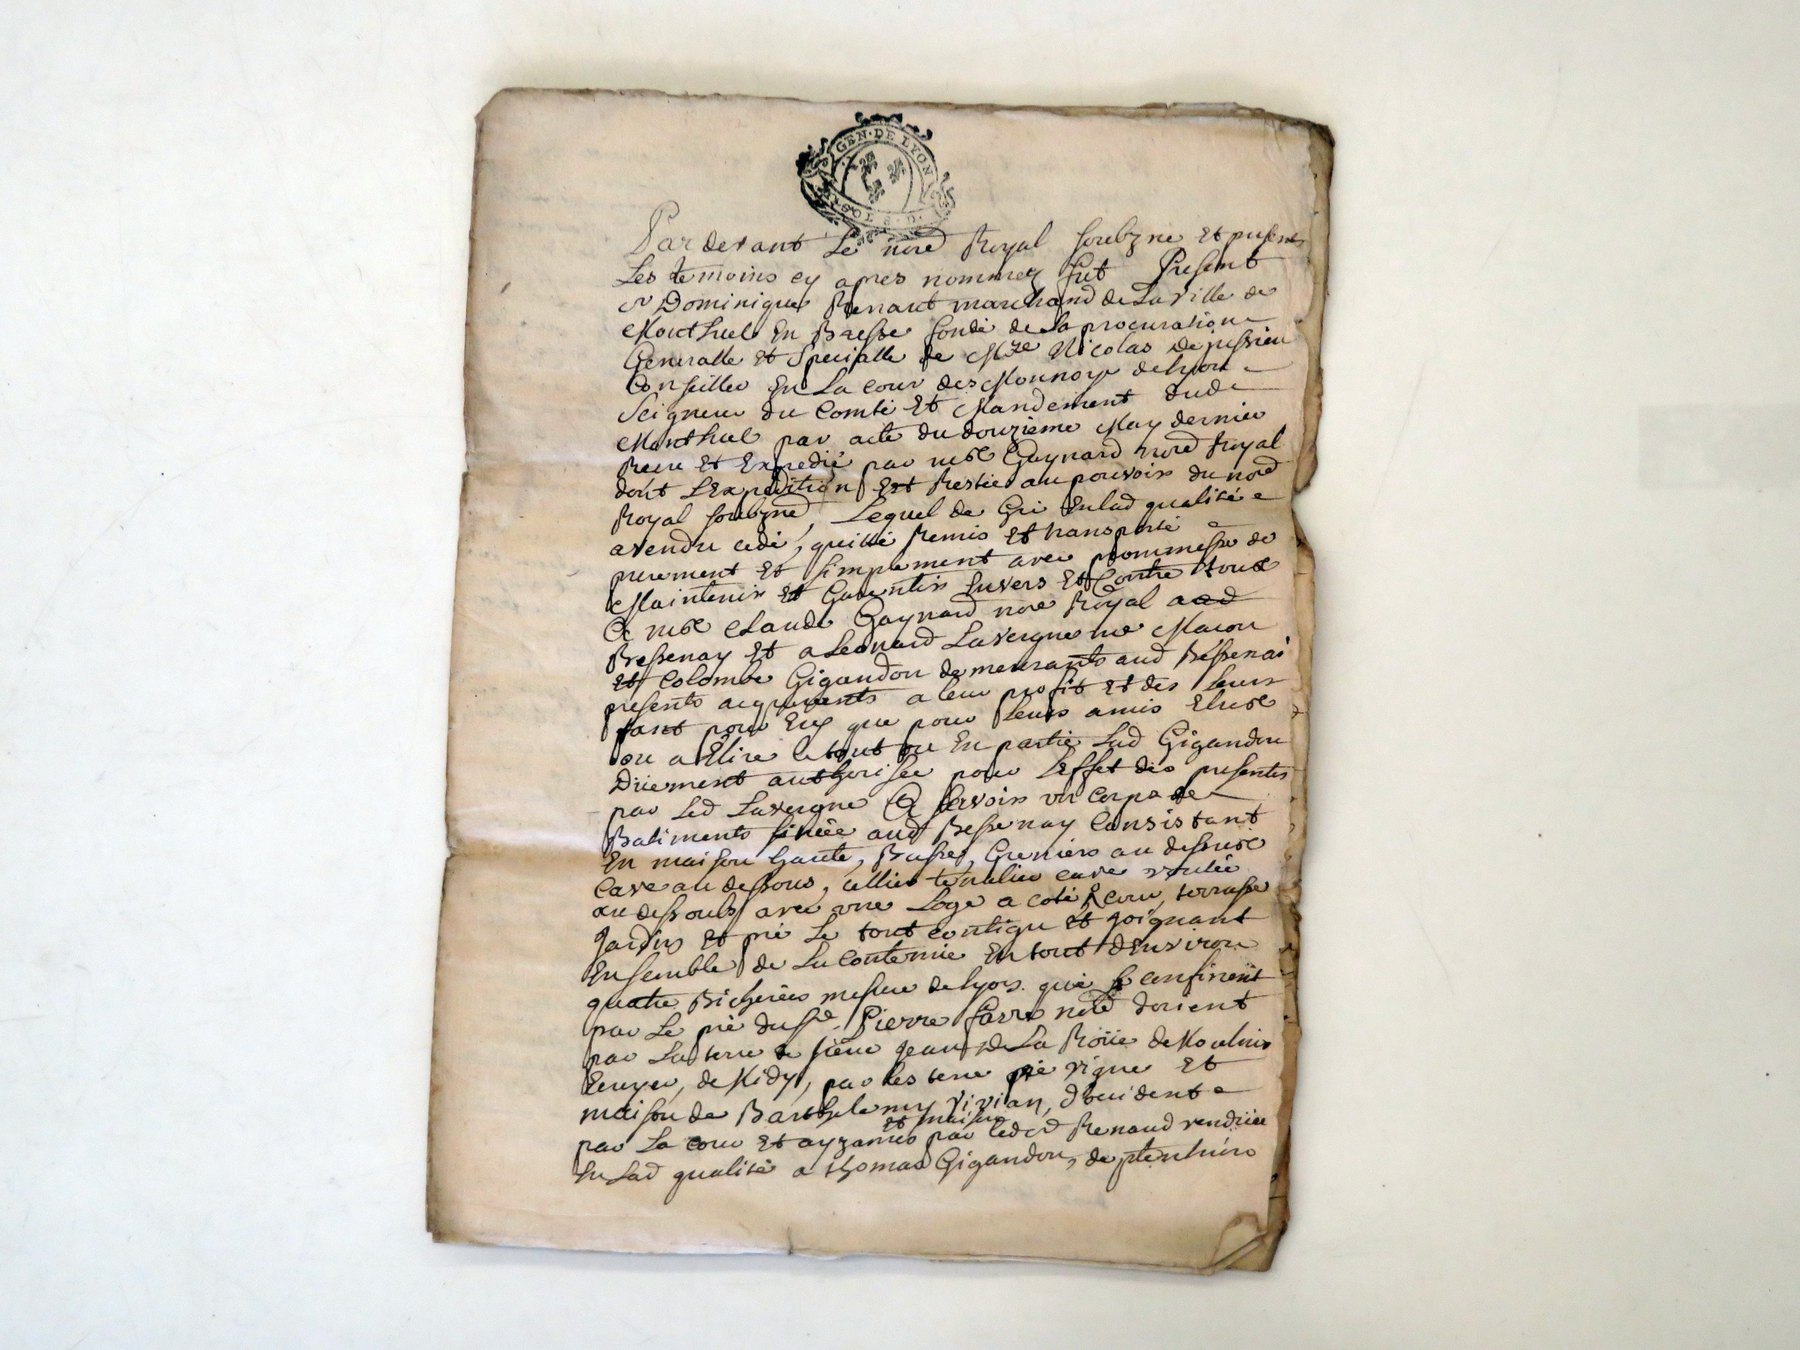 GEN·DE LYON
Par devant Le nore Royal soubzne Et presents
Les temoins cy apres nommez fut Present
sr Dominique Renaut marchand de La ville de
Montluel En Bresse fondé de La procuration
Generalle Et Specialle de Mre Nicolas Depressieu
Conseiller En La cour des Monnoye de lyon
Seigneur du Comté Et Mandement dud
Montluel par acte du douzieme May dernier
Receu Et Expedié par me Gaynard nore Royal
dont L'Expedition Est Restée au pouvoir du nore
Royal soubzné, Lequel de Gré Enlad qualité
a vendu cedé, quitté Remis Et transporté
purement Et simplement avec promesse de
Maintenir Et Garentir Envers Et Contre tous
A me Claude Gaynard nore Royal aud
Bessenay Et a Leonard Lavergne me Macon
Et Colombe Gigandon demeurants aud Bessenai
presents acquerents a leur profit Et des leurs
tant pour Eux que pour leurs amis Elus
ou a Elire le tout ou En partie Lad Gigandon
Düement authorisée pour L'effet des presentes
par Led Lavergne A scavoir un corps de
Batiments située aud Bessenay Consistant
En maison haute, Basse, Greniers au dessus
Cave au dessous, cellier tenalier cave voutée
au dessous avec une Loge a coté, Cour, terrasse
Jardin Et pré Le tout contigu Et Joignant
Ensemble de La contenüe En tout d'Environ
quatre Bicherées mesure de lyon. qui se confinent
par Le pré du sr. Pierre farre nore d'orient
par La terre de sieur Jean de La Roüe de Moulins
Ecuyer, de Midy, par les terre pré vigne Et
maison de Barthelemy Vivian, d'occident
par La cour Et ayzances Et maison par led sr Renaud vendüe
En Lad qualité a thomas Gigandon, de